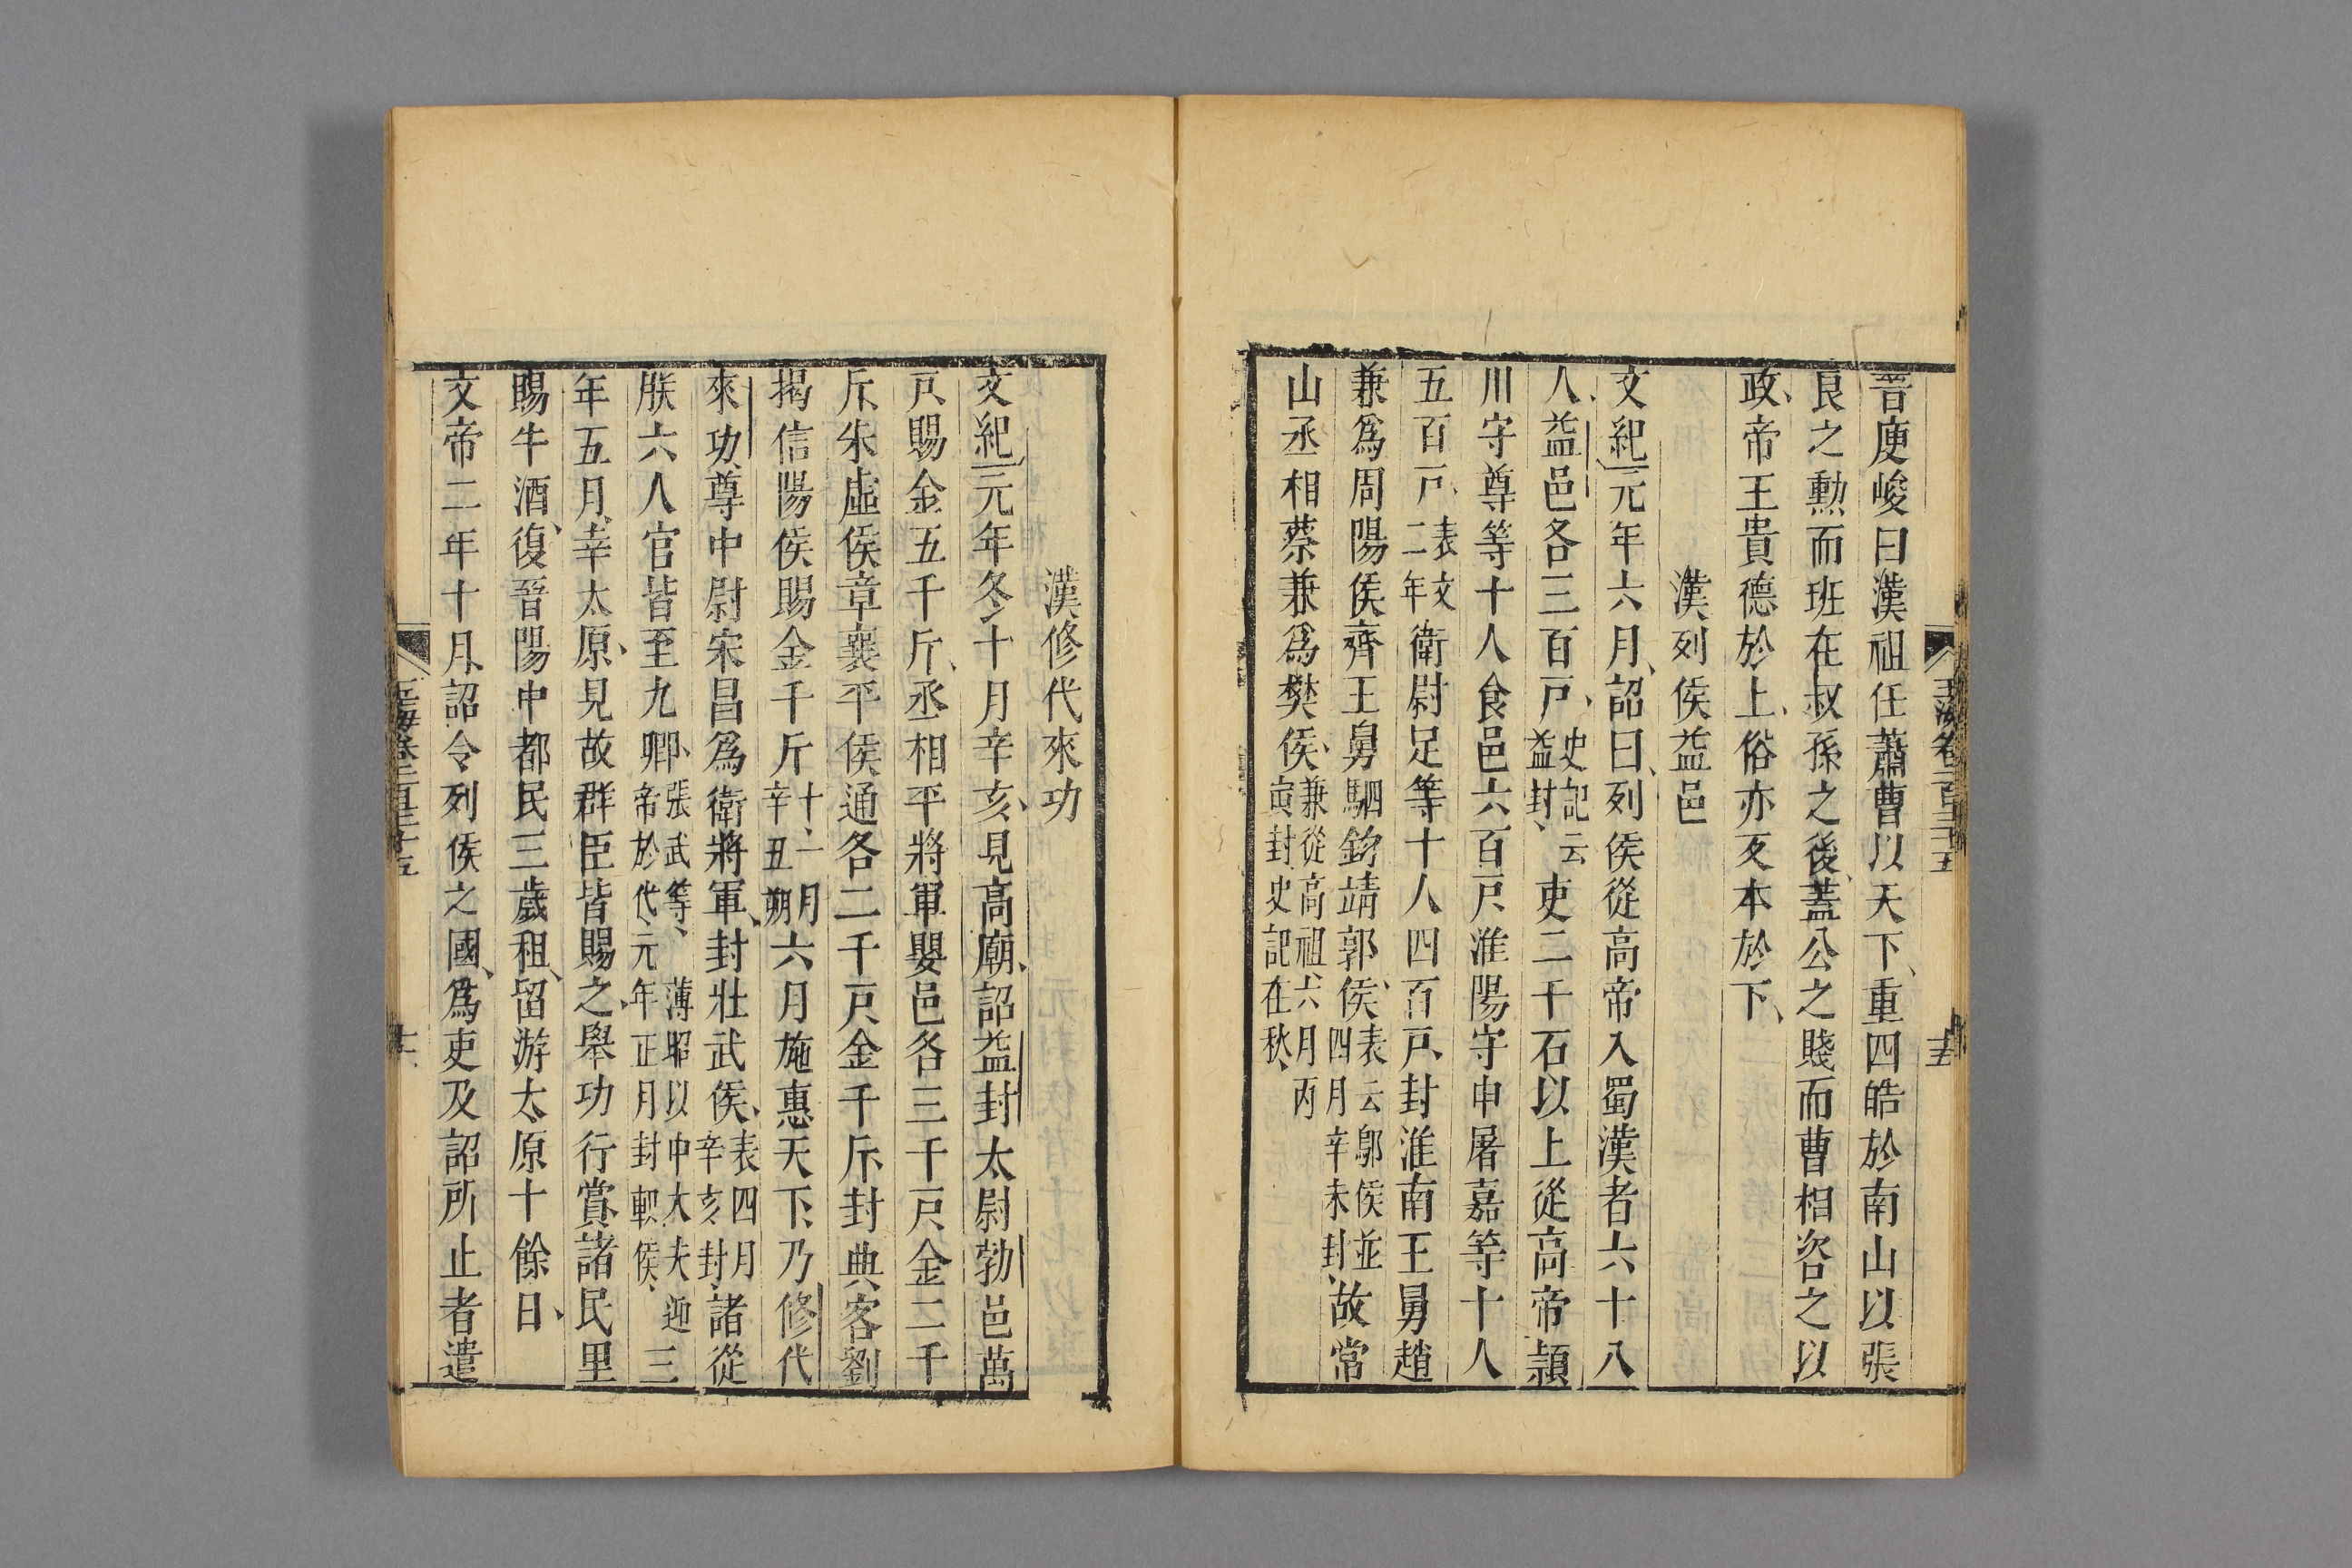 晉庾峻曰漢祖任蕭曹以天下重四皓於南山以張
良之勲而班在叔孫之後蓋公之賤而曹相咨之以
政帝王貴德於上俗亦反本於下
漢列侯益邑
文紀元年六月詔曰列侯從高帝入蜀漢者六十八
人益邑各三百戸史記云益封吏二千石以上從高帝潁
川守尊等十人食邑六百戸淮陽守申屠嘉等十人
五百戸表文二年文衛尉足等十人四百戸封淮南王舅趙
兼爲周陽侯齊王舅駟鈞靖郭侯表云鄔侯並四月辛未封故常
山丞相蔡兼爲樊侯兼從高祖六月丙寅封史記在秋
玉海卷一百三十五
十五
漢修代來功
文紀元年冬十月辛亥見高廟詔益封太尉勃邑萬
戸賜金五千斤丞相平將軍嬰邑各三千戸金二千
斤朱虛侯章襄平侯通各二千戸金千斤封典客劉
揭信陽侯賜金千斤十二月辛丑朔六月施惠天下乃修代
來功尊中尉宋昌爲衛將軍封壯武侯表四月辛亥封諸從
朕六人官皆至九卿張武等薄昭以中大夫迎帝於代元年正月封軹侯三
年五月幸太原見故群臣皆賜之舉功行賞諸民里
賜牛酒復晉陽中都民三歲租留游太原十餘日
文帝二年十月詔令列侯之國爲吏及詔所止者遣
玉海卷一百三十五